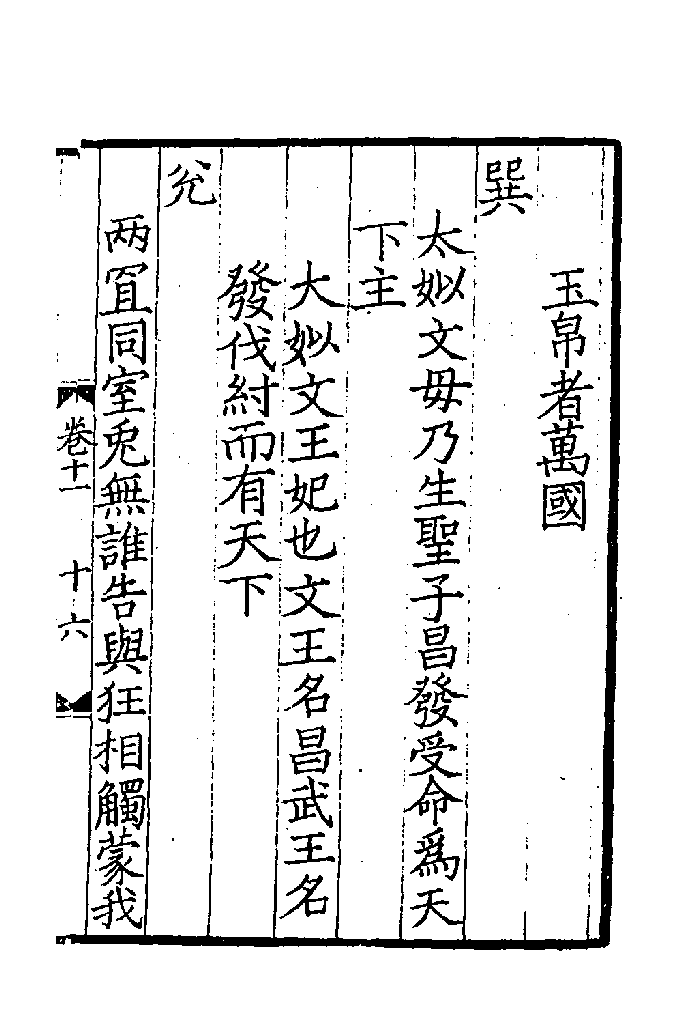 玉帛者萬國
巽
太姒文毋乃生聖子昌發受命爲天
下主
大姒文王妃也文王名昌武王名
發伐紂而有天下
兊
两冝同室兎無誰告與狂相觸蒙我
卷十一 十六